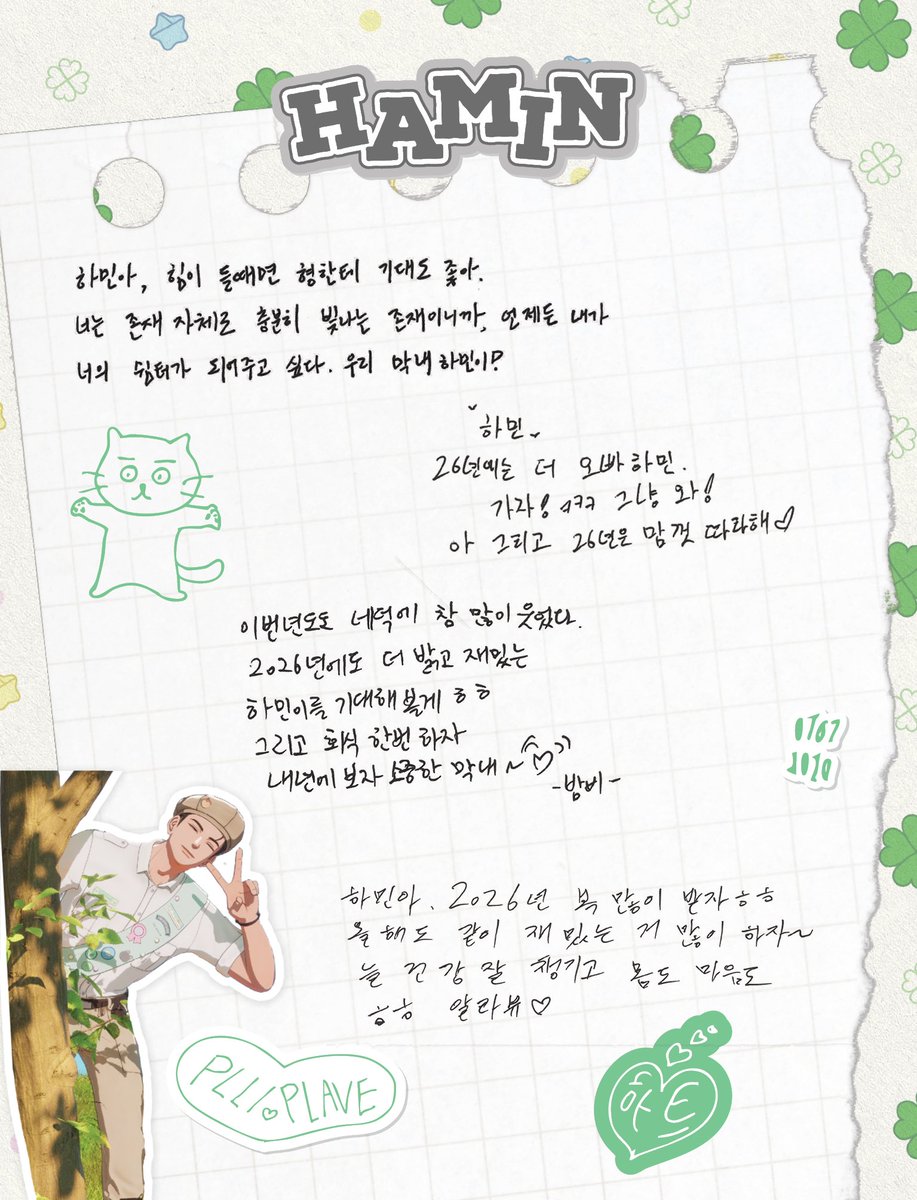 HAMIN
하민아, 힘이 들때면 형한테 기대도 좋아.
너는 존재 자체로 충분히 빛나는 존재이니까, 언제든 내가
너의 쉼터가 되어주고 싶다. 우리 막내 하민이!
하민
26년에는 더 오빠하민.
가자! ㅋㅋㅋ 그냥 와!
아 그리고 26년은 맘껏 따라해♡
이번년도도 네덕에 참 많이 웃었다.
2026년에도 더 밝고 재밌는
하민이를 기대해볼게 ㅎㅎ
그리고 회식 한번 하자
내년에 보자 소중한 막내~
-밤비-
하민아. 2026년 복 많이 받자 ㅎㅎ
올해도 같이 재밌는 거 많이 하자~
늘 건강 잘 챙기고 몸도 마음도
ㅎㅎ 알라뷰♡
PLLI♡PLAVE